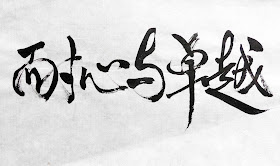 耐心与卓越